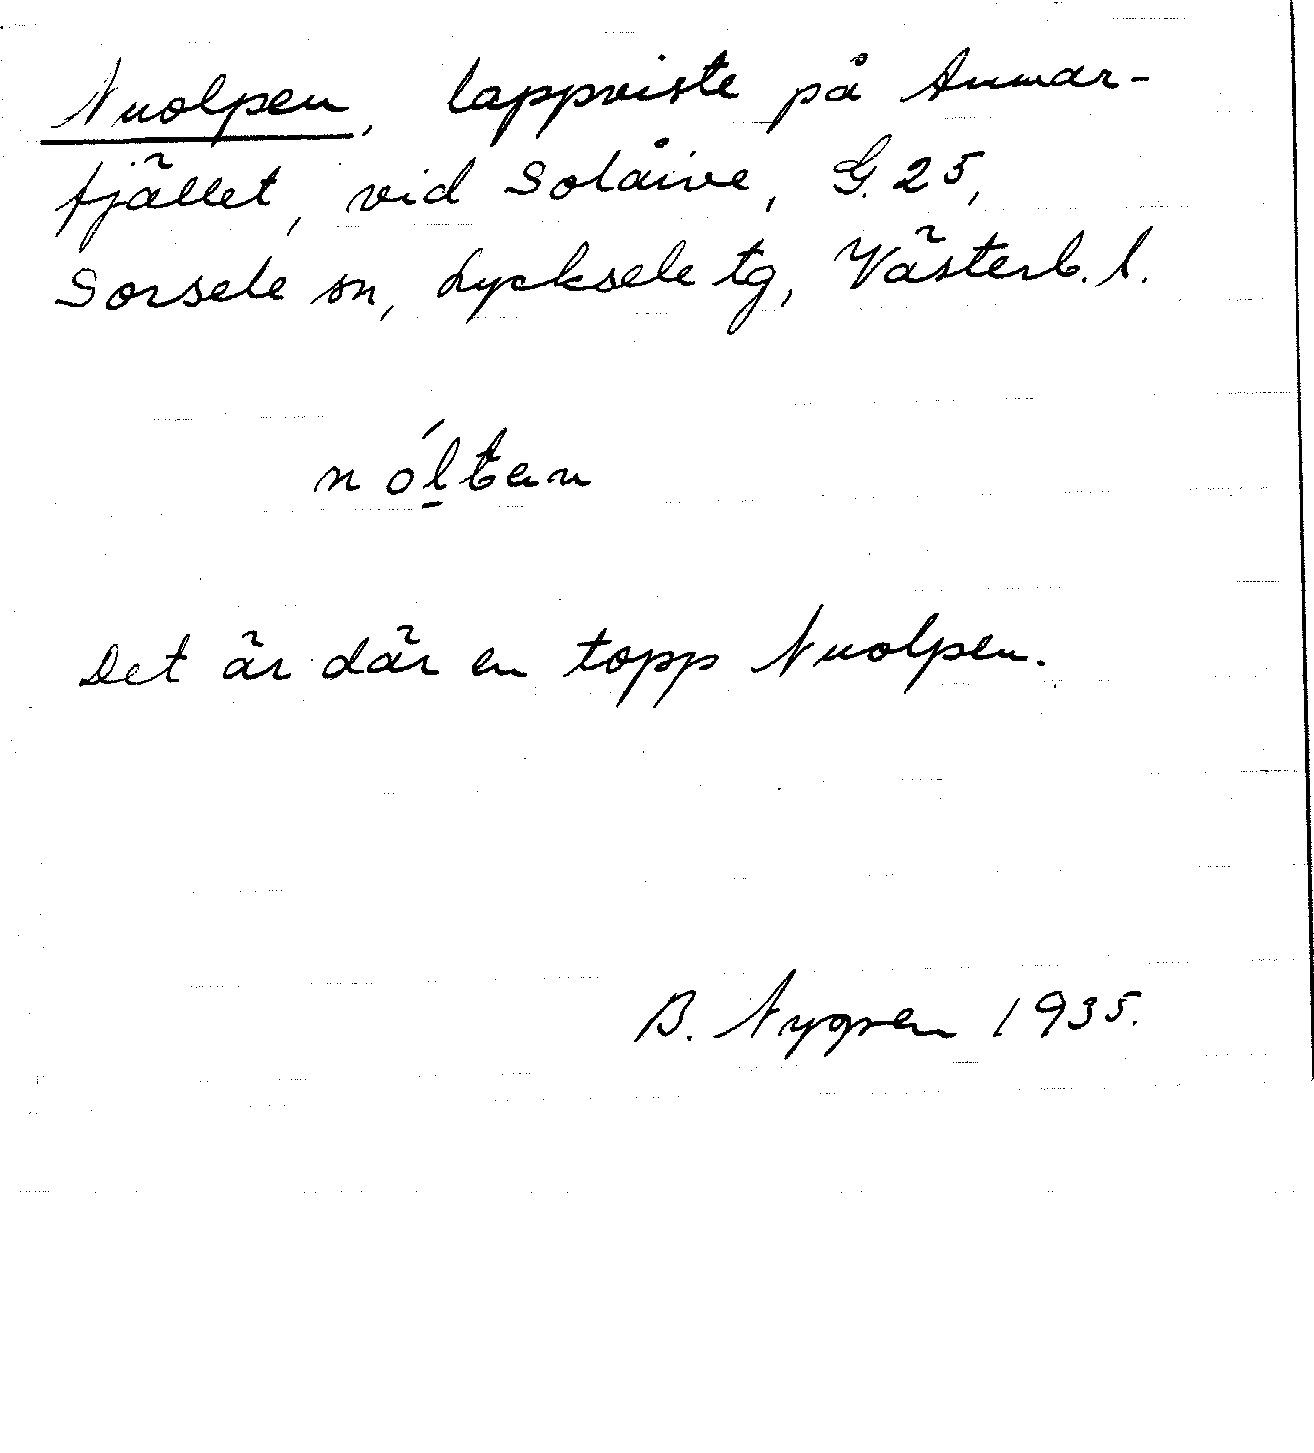 Nuolpen, lappviste på Ammar-
fjället, vid Solåive, G. 25,
Sorsele sn, Lycksele tg, Västerb. l.
Det är där en topp Nuolpen.
B. Nygren 1935.